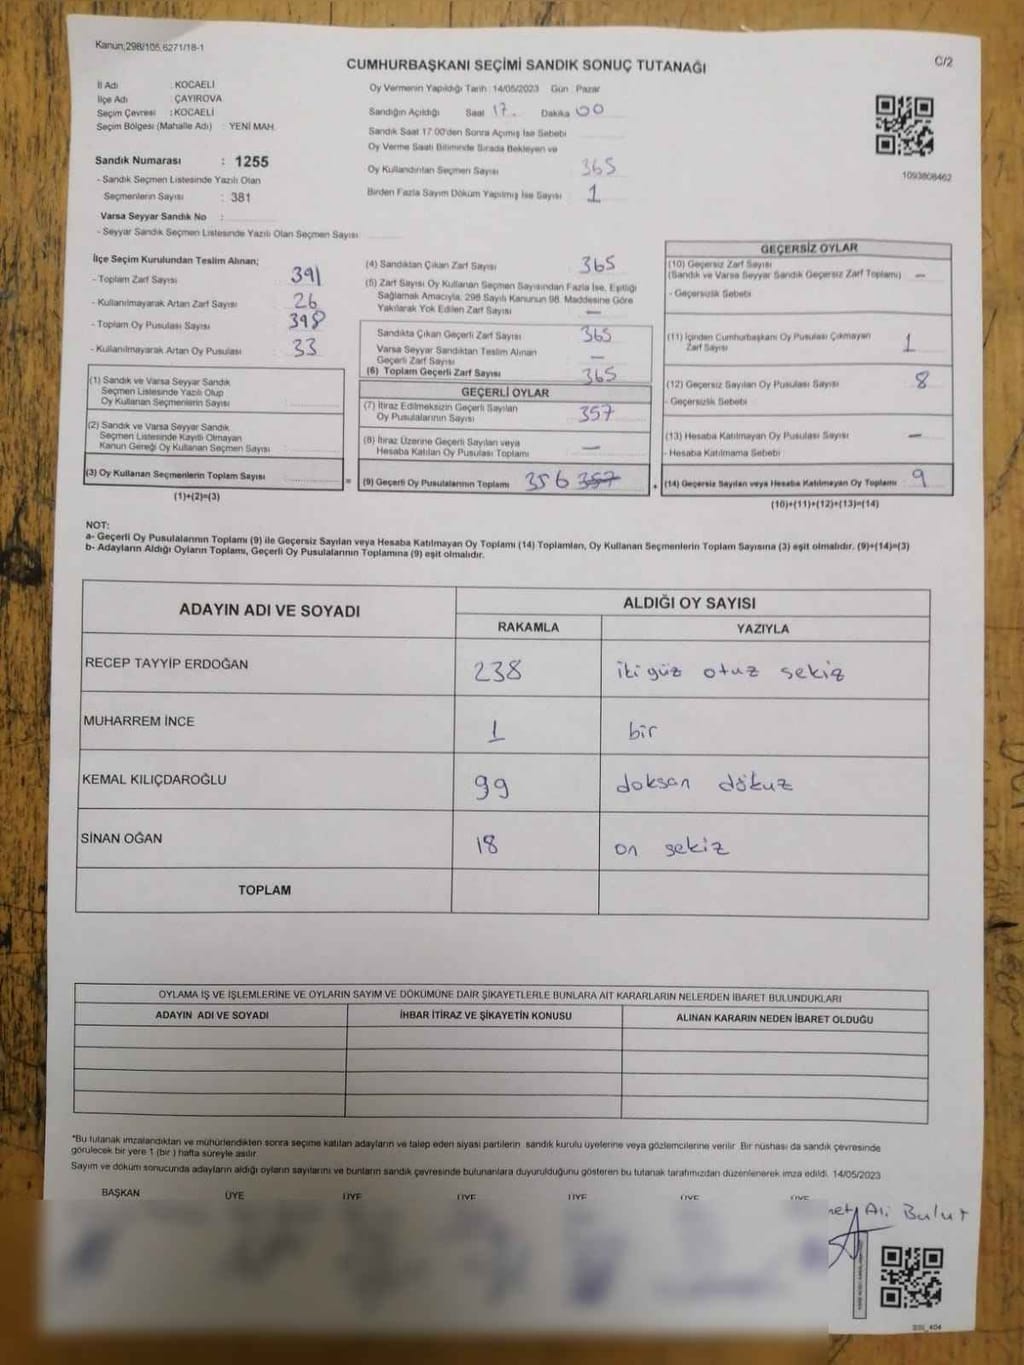 Kanun;298/105,6271/18-1
C/2
CUMHURBAŞKANI SEÇİMİ SANDIK SONUÇ TUTANAĞI
İl Adı : KOCAELİ
İlçe Adı : ÇAYIROVA
Seçim Çevresi : KOCAELİ
Seçim Bölgesi (Mahalle Adı) : YENİ MAH.
Sandık Numarası : 1255
- Sandık Seçmen Listesinde Yazılı Olan
Seçmenlerin Sayısı : 381
Varsa Seyyar Sandık No :
- Seyyar Sandık Seçmen Listesinde Yazılı Olan Seçmen Sayısı
Oy Vermenin Yapıldığı Tarih : 14/05/2023 Gün : Pazar
Sandığın Açıldığı Saat 17. Dakika 00
Sandık Saat 17.00'den Sonra Açımış İse Sebebi
Oy Verme Saati Bitiminde Sırada Bekleyen ve
Oy Kullandırılan Seçmen Sayısı 365
Birden Fazla Sayım Döküm Yapılmış İse Sayısı 1
1093808462
İlçe Seçim Kurulundan Teslim Alınan;
- Toplam Zarf Sayısı 391
- Kullanılmayarak Artan Zarf Sayısı 26
- Toplam Oy Pusulası Sayısı 398
- Kullanılmayarak Artan Oy Pusulası 33
(1) Sandık ve Varsa Seyyar Sandık
Seçmen Listesinde Yazılı Olup
Oy Kullanan Seçmenlerin Sayısı
(2) Sandık ve Varsa Seyyar Sandık
Seçmen Listesinde Kayıtlı Olmayan
Kanun Gereği Oy Kullanan Seçmen Sayısı
(3) Oy Kullanan Seçmenlerin Toplam Sayısı =
(1)+(2)=(3)
(4) Sandıktan Çıkan Zarf Sayısı 365
(5) Zarf Sayısı Oy Kullanan Seçmen Sayısından Fazla İse, Eşitliği
Sağlamak Amacıyla, 298 Sayılı Kanunun 98. Maddesine Göre
Yakılarak Yok Edilen Zarf Sayısı —
Sandıkta Çıkan Geçerli Zarf Sayısı 365
Varsa Seyyar Sandıktan Teslim Alınan
Geçerli Zarf Sayısı —
(6) Toplam Geçerli Zarf Sayısı 365
GEÇERLİ OYLAR
(7) İtiraz Edilmeksizin Geçerli Sayılan
Oy Pusulalarının Sayısı 357
(8) İtiraz Üzerine Geçerli Sayılan veya
Hesaba Katılan Oy Pusulası Toplamı —
(9) Geçerli Oy Pusulalarının Toplamı 356 357 +
GEÇERSİZ OYLAR
(10) Geçersiz Zarf Sayısı
(Sandık ve Varsa Seyyar Sandık Geçersiz Zarf Toplamı) —
- Geçersizlik Sebebi
(11) İçinden Cumhurbaşkanı Oy Pusulası Çıkmayan
Zarf Sayısı 1
(12) Geçersiz Sayılan Oy Pusulası Sayısı 8
- Geçersizlik Sebebi
(13) Hesaba Katılmayan Oy Pusulası Sayısı —
- Hesaba Katılmama Sebebi
(14) Geçersiz Sayılan veya Hesaba Katılmayan Oy Toplamı 9
(10)+(11)+(12)+(13)=(14)
NOT:
a- Geçerli Oy Pusulalarının Toplamı (9) ile Geçersiz Sayılan veya Hesaba Katılmayan Oy Toplamı (14) Toplamları, Oy Kullanan Seçmenlerin Toplam Sayısına (3) eşit olmalıdır. (9)+(14)=(3)
b- Adayların Aldığı Oyların Toplamı, Geçerli Oy Pusulalarının Toplamına (9) eşit olmalıdır.
ADAYIN ADI VE SOYADI ALDIĞI OY SAYISI
RAKAMLA YAZIYLA
RECEP TAYYİP ERDOĞAN 238 iki yüz otuz sekiz
MUHARREM İNCE 1 bir
KEMAL KILIÇDAROĞLU 99 doksan dokuz
SİNAN OĞAN 18 on sekiz
TOPLAM
OYLAMA İŞ VE İŞLEMLERİNE VE OYLARIN SAYIM VE DÖKÜMÜNE DAİR ŞİKAYETLERLE BUNLARA AİT KARARLARIN NELERDEN İBARET BULUNDUKLARI
ADAYIN ADI VE SOYADI İHBAR İTİRAZ VE ŞİKAYETİN KONUSU ALINAN KARARIN NEDEN İBARET OLDUĞU
*Bu tutanak imzalandıktan ve mühürlendikten sonra seçime katılan adayların ve talep eden siyasi partilerin sandık kurulu üyelerine veya gözlemcilerine verilir. Bir nüshası da sandık çevresinde
görülecek bir yere 1 (bir) hafta süreyle asılır.
Sayım ve döküm sonucunda adayların aldığı oyların sayılarını ve bunların sandık çevresinde bulunanlara duyurulduğunu gösteren bu tutanak tarafımızdan düzenlenerek imza edildi. 14/05/2023
BAŞKAN ÜYE ÜYE ÜYE ÜYE ÜYE ÜYE
Ali Bulut